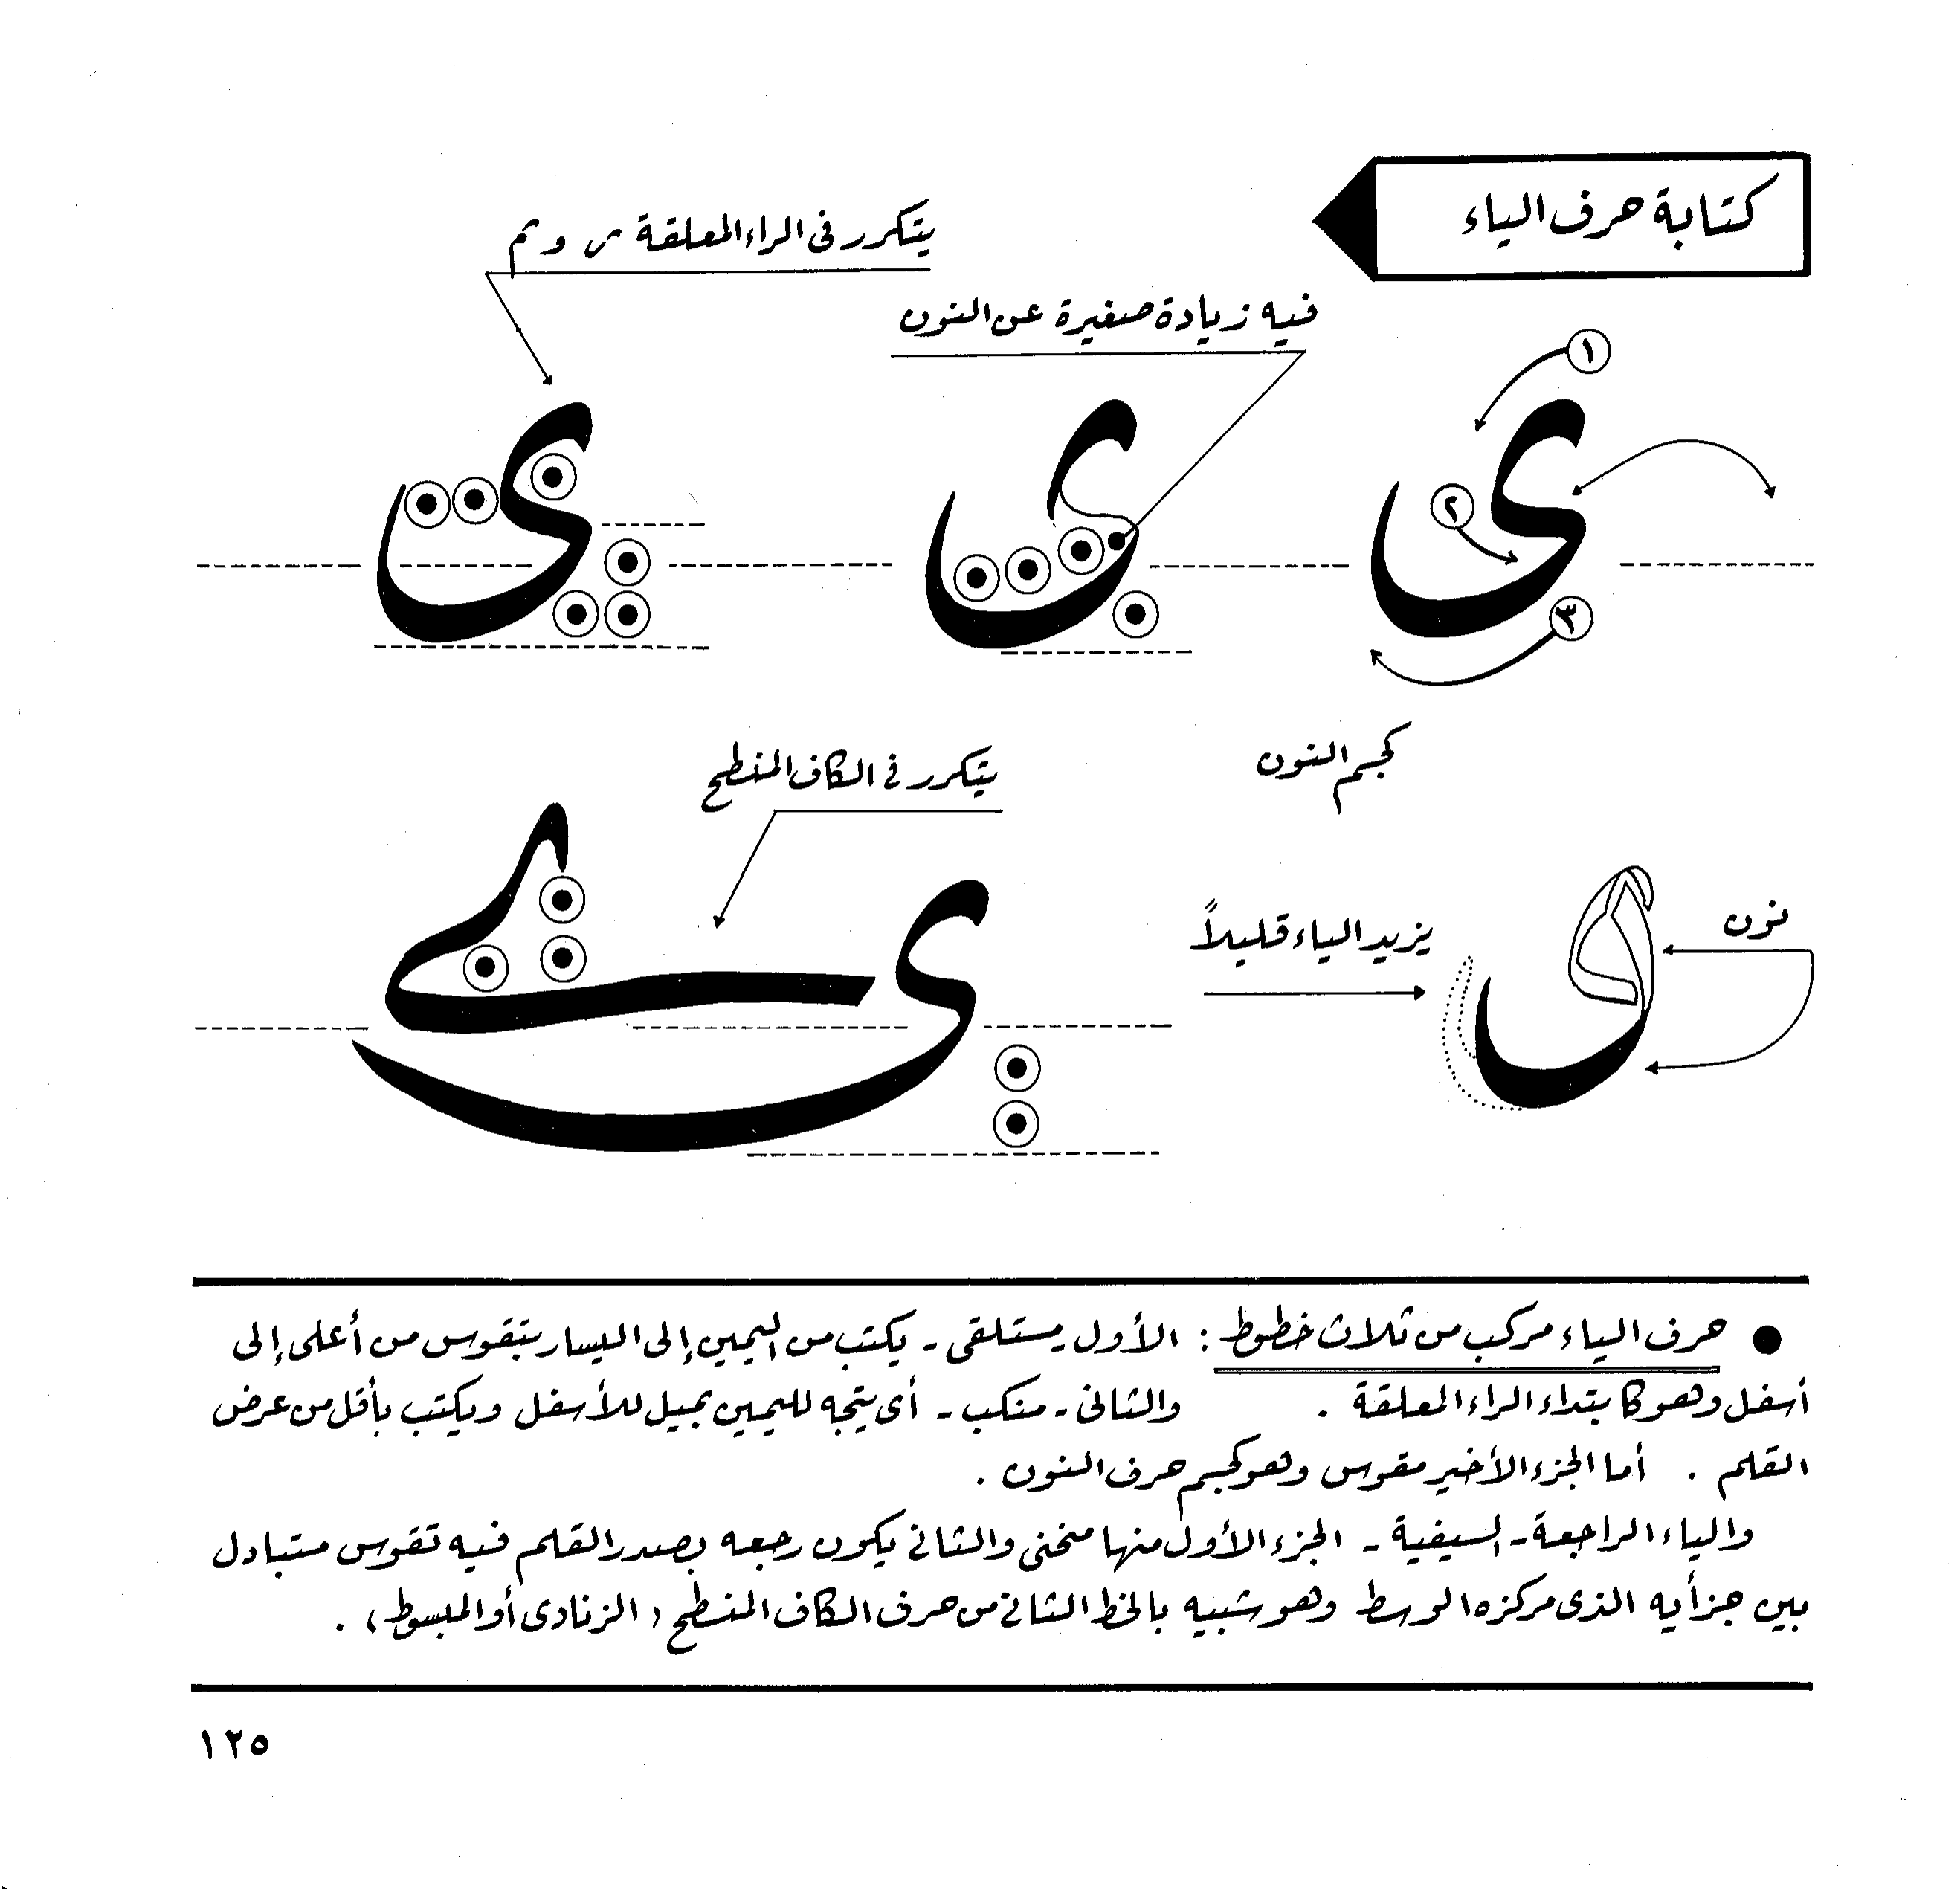 كتابة حرف الياء
يتكرر فى الراء المعلقة
فيه زيادة صغيرة عن النون
١
٢
٣
كجسم النون
يتكرر فى الكاف المنطح
نون
يزيد الياء قليلاً
● حرف الياء مركب من ثلاث خطوط : الأول مستلقى - يكتب من اليمين إلى اليسار بتقوس من أعلى إلى
أسفل وهو كابتداء الراء المعلقة . والثانى - منكب - أى يتجه لليمين بميل للأسفل ويكتب بأقل من عرض
القلم . أما الجزء الأخير مقوس وهو كجسم حرف النون .
والياء الراجعة - السيفية - الجزء الأول منها منحنى والثانى يكون رجعه بصدر القلم فيه تقوس متبادل
بين جزأيه الذى مركزه الوسط وهو شبيه بالخط الثانى من حرف الكاف المنطح ( الزنادى أو المبسوط ) .
١٢٥